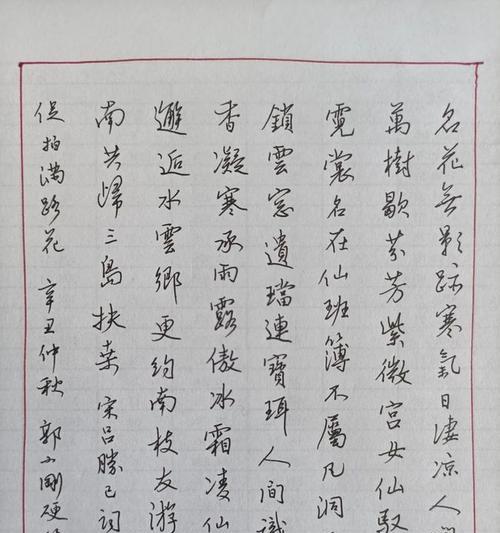 名花無影跡寒氣日凄凉人間
萬樹歇芬芳紫微宫女仙馭
霓裳名在仙班簿不屬凡洞
鎖雲窓遺璫連寶珥人間識
香凝寒承雨露傲冰霜凌仙
邂逅水雲鄉更約南枝友游
南共歸三島扶桒宋吕勝己詞
促拍滿路花辛丑仲秋郭小剛硬